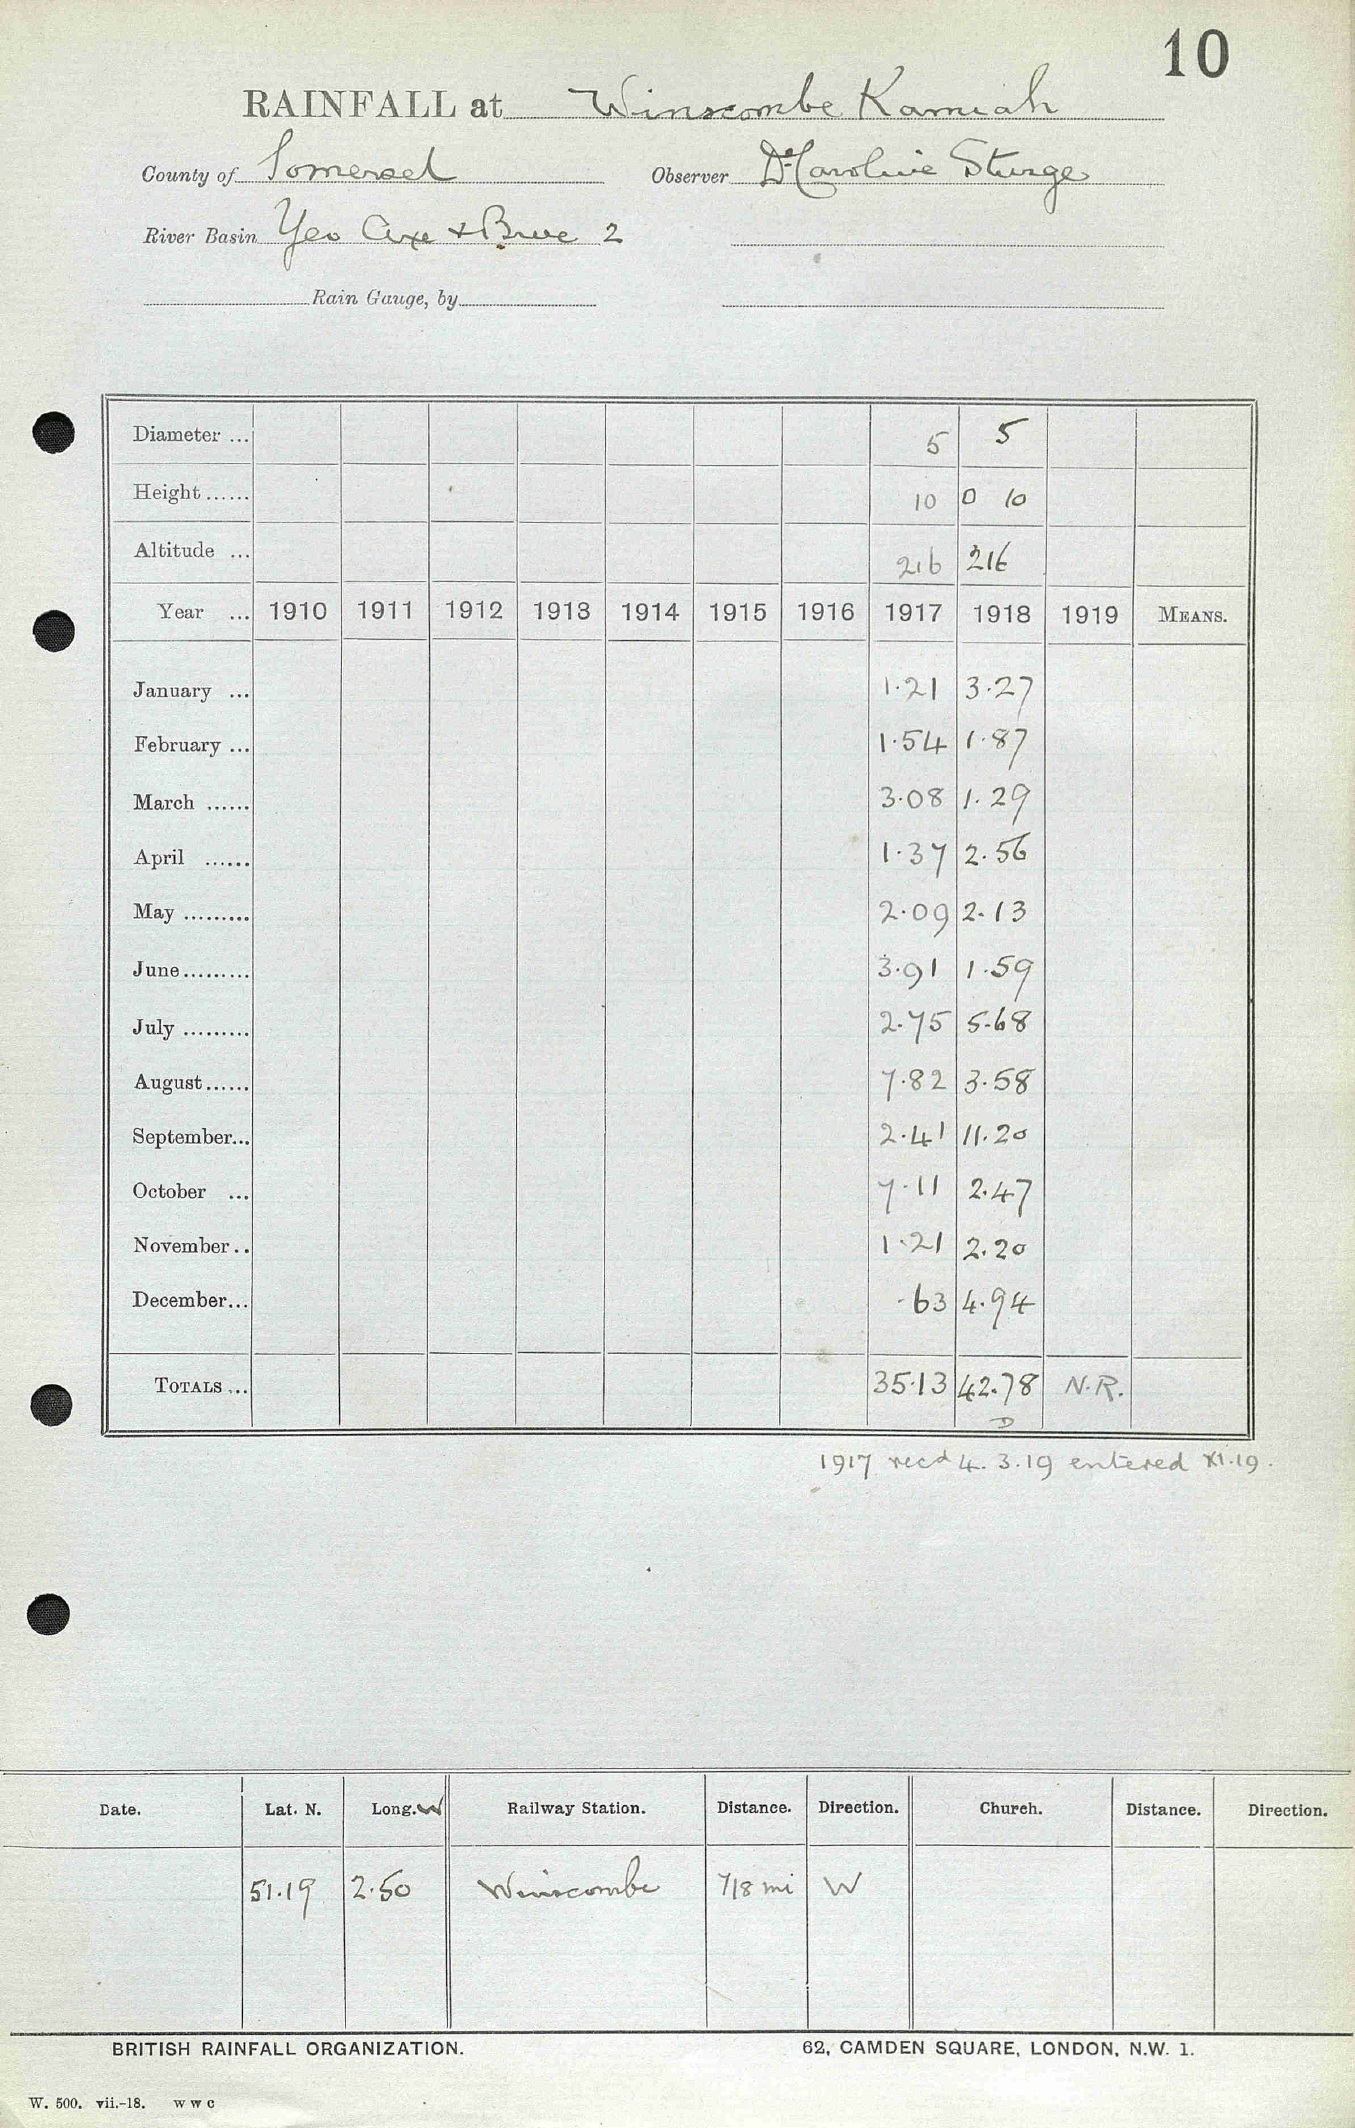 10
RAINFALL at Winscombe Kamiah
County of Somerset Observer Dr Caroline Sturge
River Basin Yeo Axe & Brue 2
Rain Gauge, by
Diameter ... 5 5
Height ...... 10 0 10
Altitude ... 216 216
Year ... 1910 1911 1912 1913 1914 1915 1916 1917 1918 1919 MEANS.
January ... 1.21 3.27
February ... 1.54 1.87
March ...... 3.08 1.29
April ...... 1.37 2.56
May ......... 2.09 2.13
June ......... 3.91 1.59
July ......... 2.75 5.68
August ...... 7.82 3.58
September... 2.41 11.20
October ... 7.11 2.47
November .. 1.21 2.20
December... .63 4.94
TOTALS ... 35.13 42.78 N.R.
D
1917 recd 4.3.19 entered XI.19.
Date. Lat. N. Long. W Railway Station. Distance. Direction. Church. Distance. Direction.
51.19 2.50 Winscombe 7/8 mi W
BRITISH RAINFALL ORGANIZATION. 62, CAMDEN SQUARE, LONDON, N.W. 1.
W. 500. vii.-18. W W C